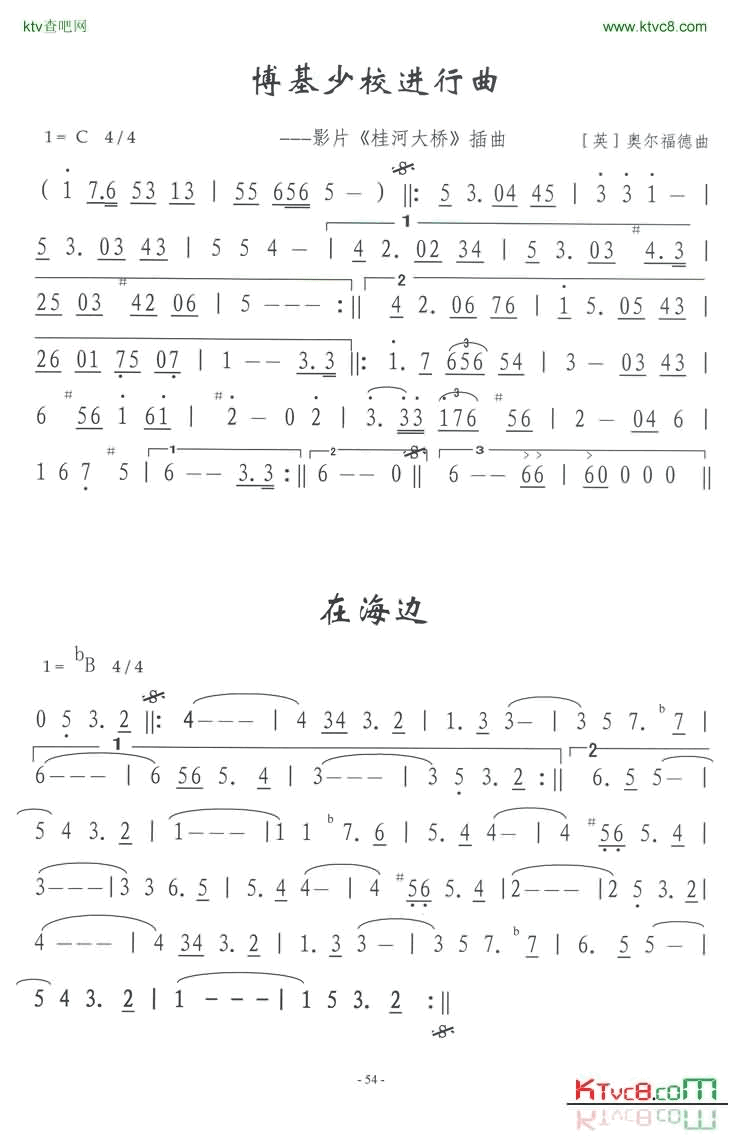 ktv查吧网 www.ktvc8.com
博基少校进行曲
1= C 4/4 ---影片《桂河大桥》插曲 [英]奥尔福德曲
( 1 7.6 53 13 | 55 656 5 — ) ||: 5 3. 04 45 | 3 3 1 — |
1
5 3. 03 43 | 5 5 4 — | 4 2. 02 34 | 5 3. 03 #4.3 |
2
25 03 #42 06 | 5 — — — :|| 4 2. 06 76 | 1 5. 05 43 |
26 01 75 07 | 1 — — 3.3 ||: 1. 7 656 54 | 3 — 03 43 |
6 #56 1 61 | #2 — 0 2 | 3. 33 176 #56 | 2 — 04 6 |
1 2 3
1 6 7 #5 | 6 — — 3.3 :|| 6 — — 0 || 6 — — 66 | 60 0 0 0 ||
在海边
1= bB 4/4
0 5 3. 2 ||: 4 — — — | 4 34 3. 2 | 1. 3 3 — | 3 5 7. b7 |
1 2
6 — — — | 6 56 5. 4 | 3 — — — | 3 5 3. 2 :|| 6. 5 5 — |
5 4 3. 2 | 1 — — — | 1 1 b7. 6 | 5. 4 4 — | 4 #56 5. 4 |
3 — — — | 3 3 6. 5 | 5. 4 4 — | 4 #56 5. 4 | 2 — — — | 2 5 3. 2 |
4 — — — | 4 34 3. 2 | 1. 3 3 — | 3 5 7. b7 | 6. 5 5 — |
5 4 3. 2 | 1 — — — | 1 5 3. 2 :||
- 54 -
KTvc8.com